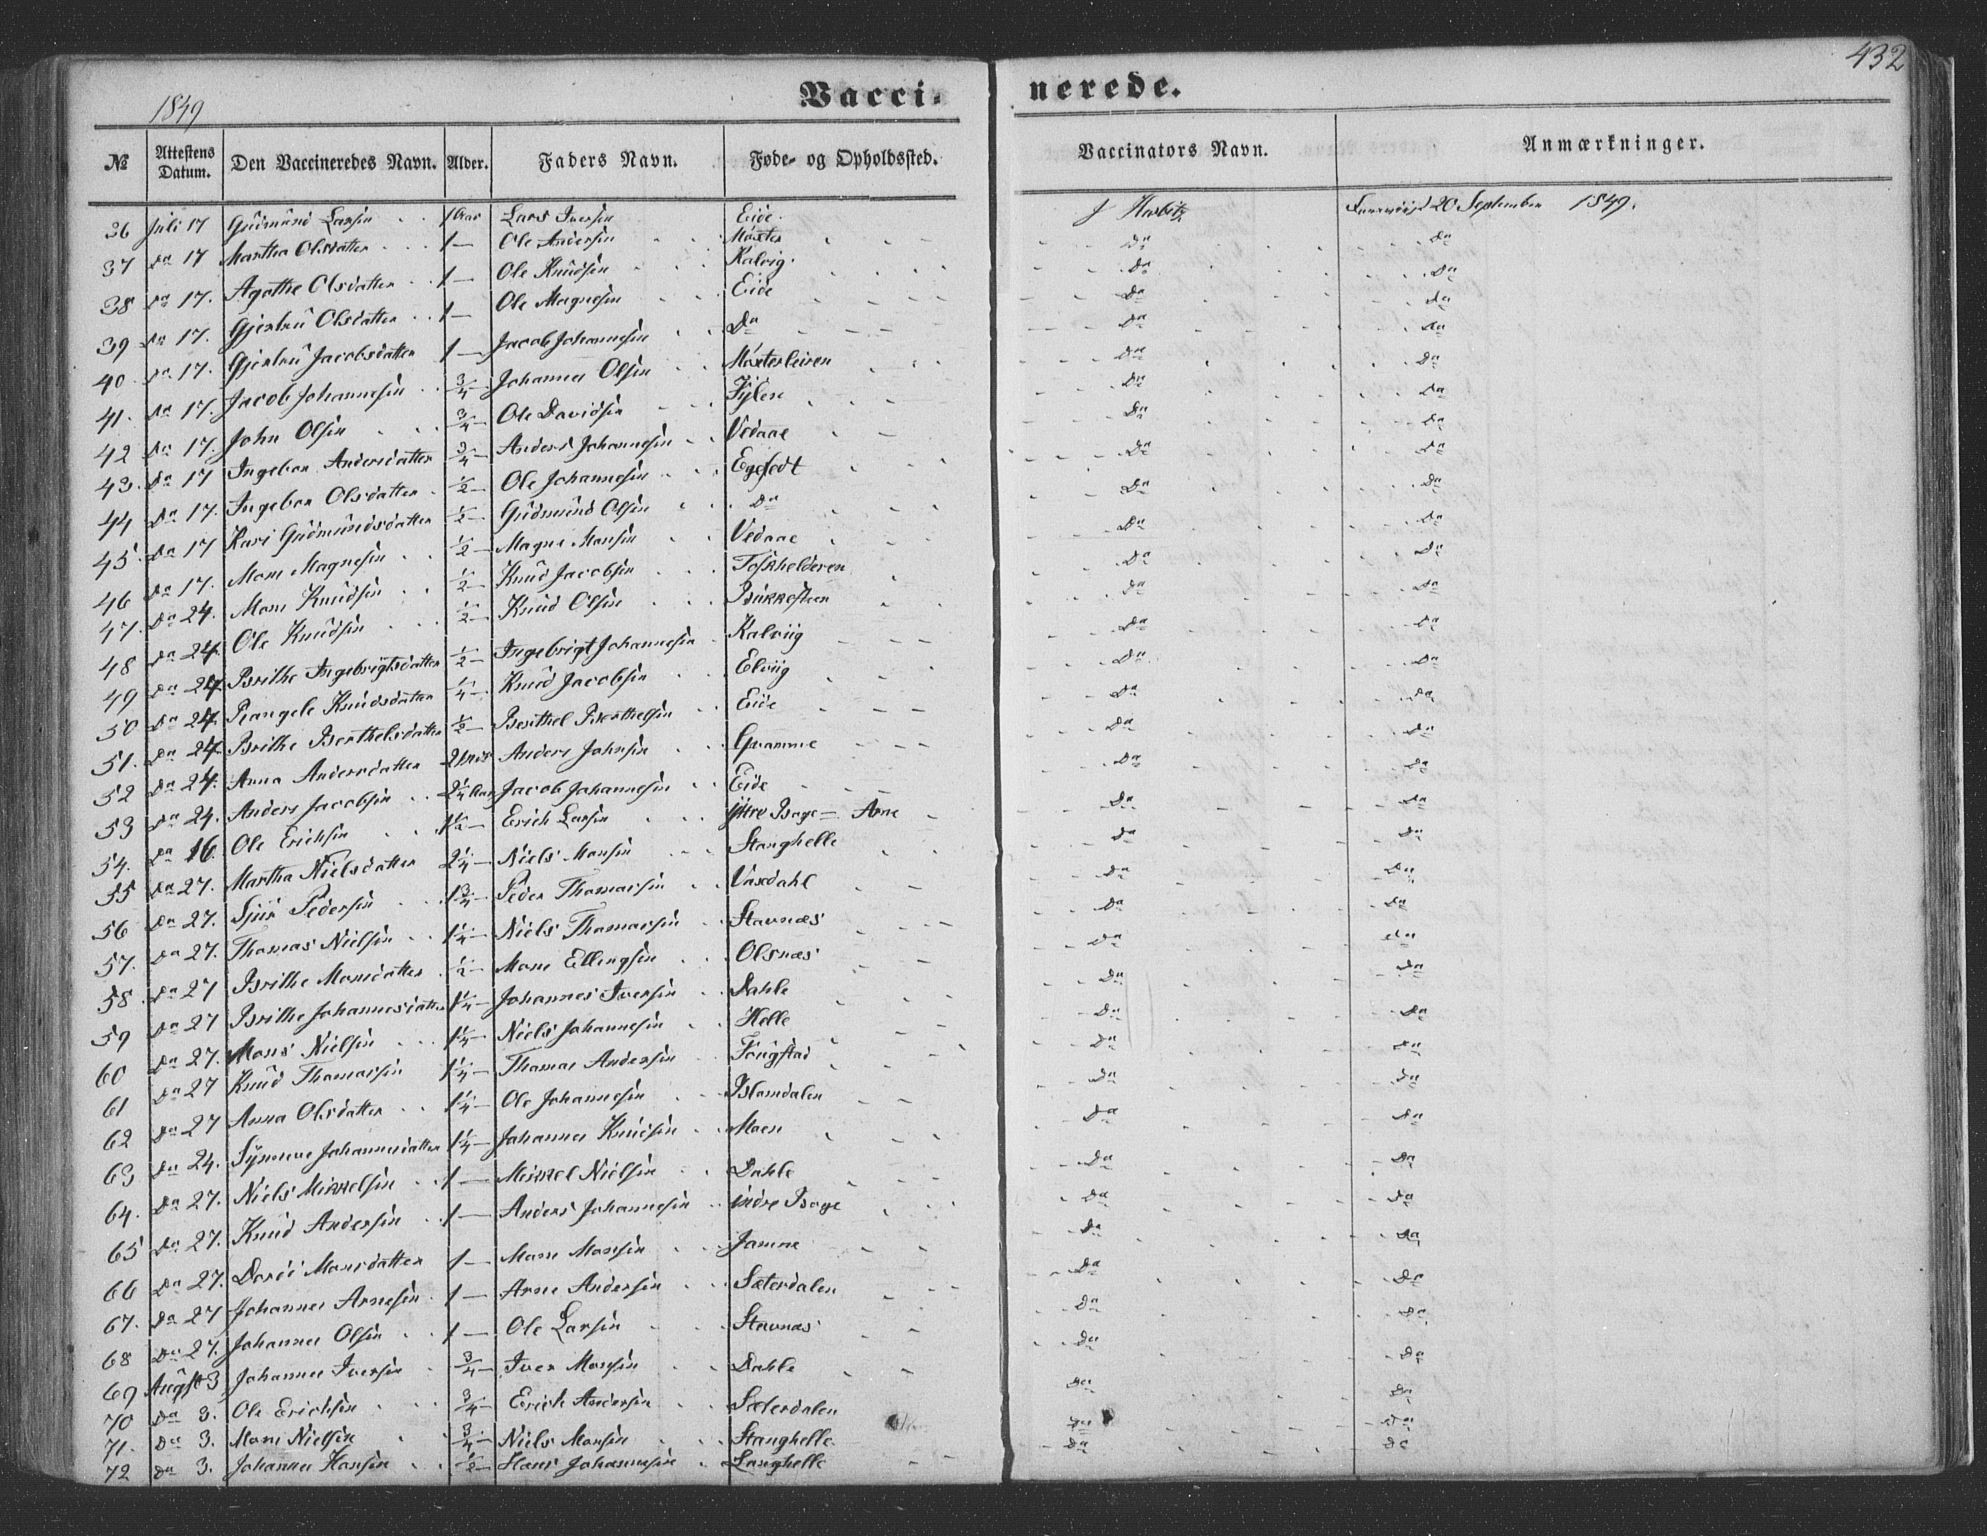 432
1849
Vaccinerede.
№ Attestens Datum. Den Vaccineredes Navn. Alder. Faders Navn. Føde- og Opholdssted. Vaccinators Navn. Anmærkninger.
36 Juli 17 Gudmund Larsen 1 Aar Lars Iversen Eide J 20 September 1849.
37 Do 17 Martha Olsdatter 1 — Ole Andersen Moster Do Do
38 Do 17. Agathe Olsdatter 1 — Ole Knudsen Kalvig Do Do
39 Do 17. Gjertru Olsdatter 1 — Ole Magnesen Eide Do Do
40 Do 17. Gjertru Jacobsdatter 1 — Jacob Johannesen Do Do Do
41. Do 17. Jacob Johannesen 3/4 — Johannes Olsen Do Do
42 Do 17. John Olsen 3/4 — Ole Davidsen Do Do
43. Do 17 Ingebor Andersdatter 3/4 — Anders Johannesen Vedaae Do Do
44 Do 17. Ingebor Olsdatter 1/2 — Ole Johannesen Do Do
45 Do 17 Kari Gudmundsdatter 1/2 — Gudmund Olsen Do Do Do
46 Do 17. Mons Magnesen 1/2 — Magne Monsen Vedaae Do Do
47. Do 24. Mons Knudsen 1/2 — Knud Jacobsen Do Do
48 Do 24. Ole Knudsen 1/2 — Knud Olsen Do Do
49 Do 24 Brithe Ingebrigtsdatter 1/2 — Ingebrigt Johannesen Kalviig Do Do
50 Do 24. Knudsdatter 1/4 — Knud Jacobsen Elviig Do Do
51. Do 24 Brithe Berthelsdatter 1/2 — Berthel Berthelsen Eide Do Do
52 Do 24. Anna Andersdatter Anders Johnsen Gramme Do Do
53 Do 24. Anders Jacobsen 2 1/4 Aar Jacob Johannesen Eide Do Do
54. Do 16. Ole Erichsen 1 1/2 — Erich Larsen Ytre Bøge — Arne Do Do
55 Do 27. Martha Nielsdatter 2 1/4 — Niels Monsen Stanghelle Do Do
56 Do 27. Sjur Pedersen 1 3/4 — Peder Thomassen Vaxdahl Do Do
57. Do 27. Thomas Nielsen 1 1/4 — Niels Thomassen Stavnæs Do Do
58. Do 27 Brithe Monsdatter 1/2 — Mons Ellingsen Olsnæs Do Do
59 Do 27 Brithe Johannesdatter 1 1/4 — Johannes Iversen Dahle Do Do
60 Do 27. Mons Nielsen 1 1/4 — Niels Johannesen Helle Do Do
61 Do 27 Knud Thomassen 1 1/4 — Thomas Andersen Do Do
62 Do 27 Anna Olsdatter 1 1/4 — Ole Johannesen Do Do
63 Do 24. Synneve Johannesdatter 1 1/4 — Johannes Knudsen Moen Do Do
64. Do 27. Niels Mikkelsen 1 — Mikkel Nielsen Dahle Do Do
65 Do 27. Knud Andersen 1 — Anders Johannesen indre Bøge Do Do
66 Do 27. Monsdatter 1 — Mons Monsen Jamne Do Do
67. Do 27 Johannes Arnesen 1 — Arne Andersen Sæterdalen Do Do
68 Do 27. Johannes Olsen 1 — Ole Larsen Stavnæs Do Do
69 August 3 Johannes Iversen 3/4 — Iver Monsen Dahle Do Do
70 Do 3. Ole Erichsen 3/4 — Erich Andersen Sæterdalen Do Do
71. Do 3. Mons Nielsen 3/4 — Niels Monsen Stanghelle Do Do
72 Do 3. Johannes Hansen 1/2 — Hans Johannesen Langhelle Do Do